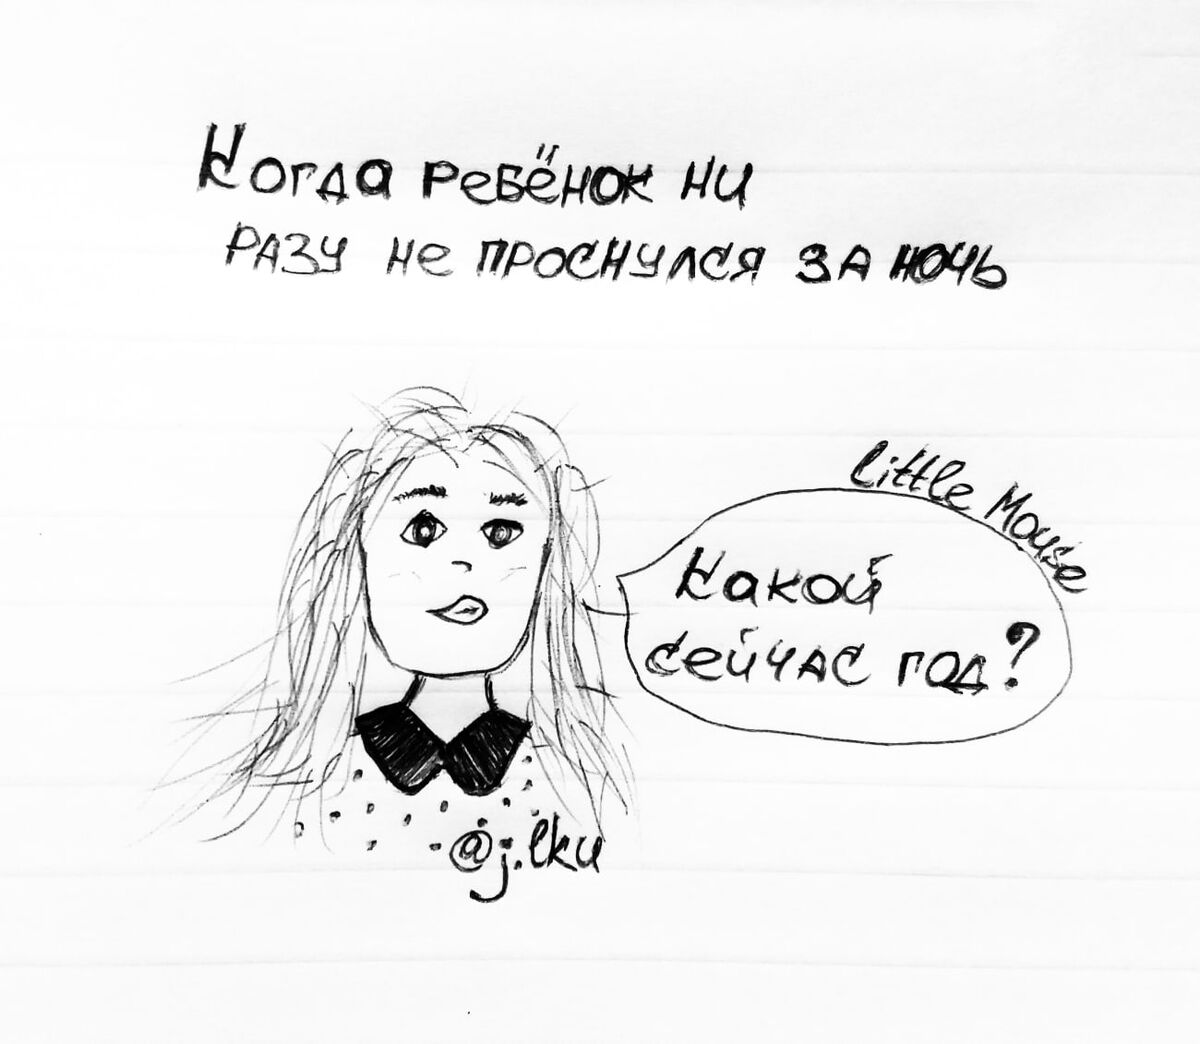 Когда ребёнок ни
разу не проснулся за ночь
Little Mouse
Какой
сейчас год?
@j.lku